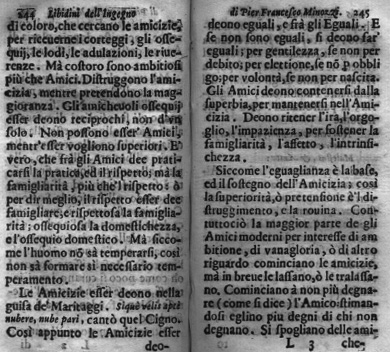 244 Libidini dell'Ingegno
di coloro, che cercano le amicizie,
per riceuerne i corteggi, gli osse-
quij, le lodi, le adulazioni, le riue-
renze. Mà costoro sono ambitiosi
più che Amici. Distruggono l'ami-
cizia, mentre pretendono la mag-
gioranza. Gli amicheuoli ossequij
esser deono reciprochi, non d'vn
solo. Non possono esser Amici,
mentr'esser vogliono superiori. E
vero, che frà gli Amici dee prati-
carsi la pratica, ed il rispetto; mà la
famigliarità, più che'l rispetto: ò
per dir meglio, il rispetto esser dee
famigliare, e rispettosa la famiglia-
rità; ossequiosa la domestichezza,
e l'ossequio domestico. Mà sicco-
me l'huomo nõ sà temperarsi, così
non sà formare sì necessario tem-
peramento.
Le Amicizie esser deono nella
guisa de Maritaggi. Siquà velis aptè
nubere, nube pari, cantò quel Cigno.
Così appunto le Amicizie esser
deo-
di Pier Francesco Minozzi. 245
deono eguali, e frà gli Eguali. E
se non sono eguali, si deono far'
eguali; per gentilezza, se non per
debito; per elettione, se nõ p obbli
go; per volontà, se non per nascita.
Gli Amici deono contenersi dalla
superbia, per mantenersi nell'Ami-
cizia. Deono ritener l'ira, l'orgo-
glio, l'impazienza, per sostener la
famigliarità, l'affetto, l'intrinsi-
chezza.
Siccome l'eguaglianza è la base,
ed il sostegno dell'Amicizia; così
la superiorità, ò pretensione è'l di-
struggimento, e la rouina. Con-
tuttociò la maggior parte de gli
Amici moderni per interesse di am-
bitione, di vanagloria, ò di altro
riguardo cominciano le amicizie,
mà in breue le lassano, ò le tralassa-
no. Cominciano à non più degna-
re (come si dice) l'Amico: stiman-
dosi eglino più degni di chi non
degnano. Si spogliano delle ami-
L 3 che-